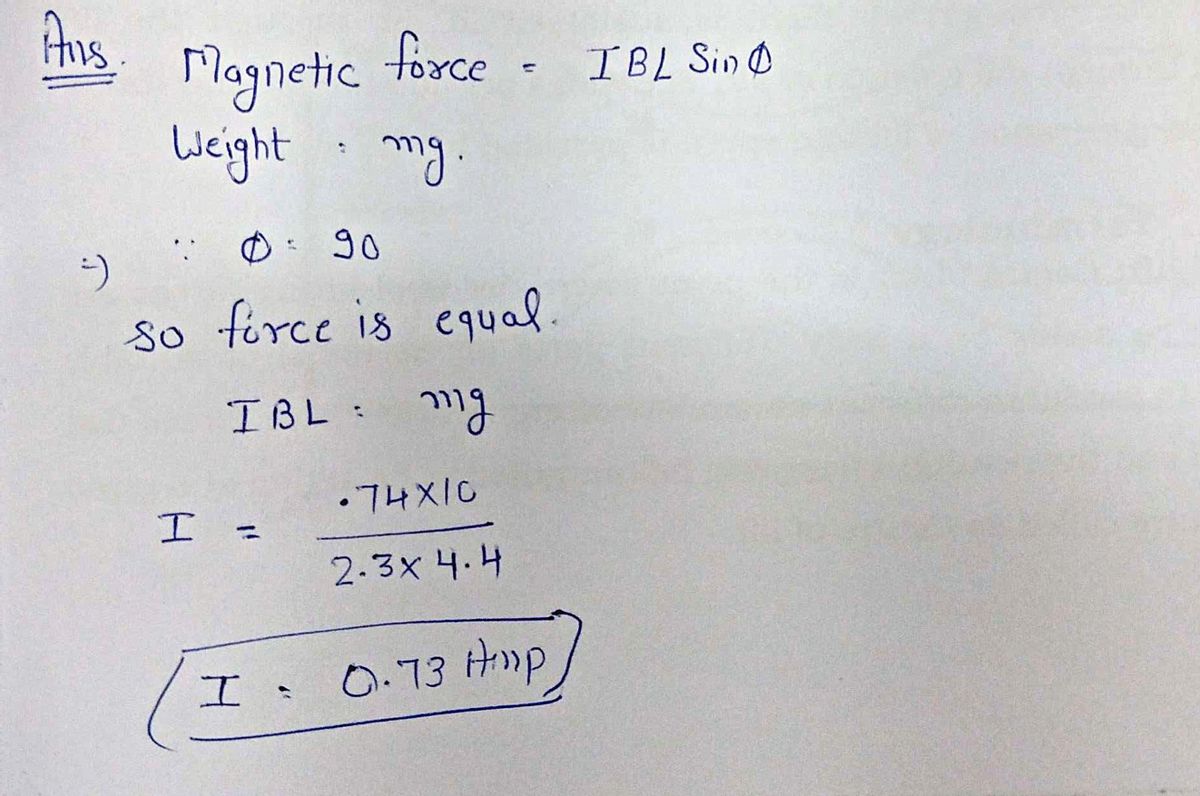 Ans. Magnetic force = IBL Sin Φ
Weight : mg.
∵ Φ = 90
=)
so force is equal.
IBL = mg
I = .74×10
2.3×4.4
I = 0.73 Amp